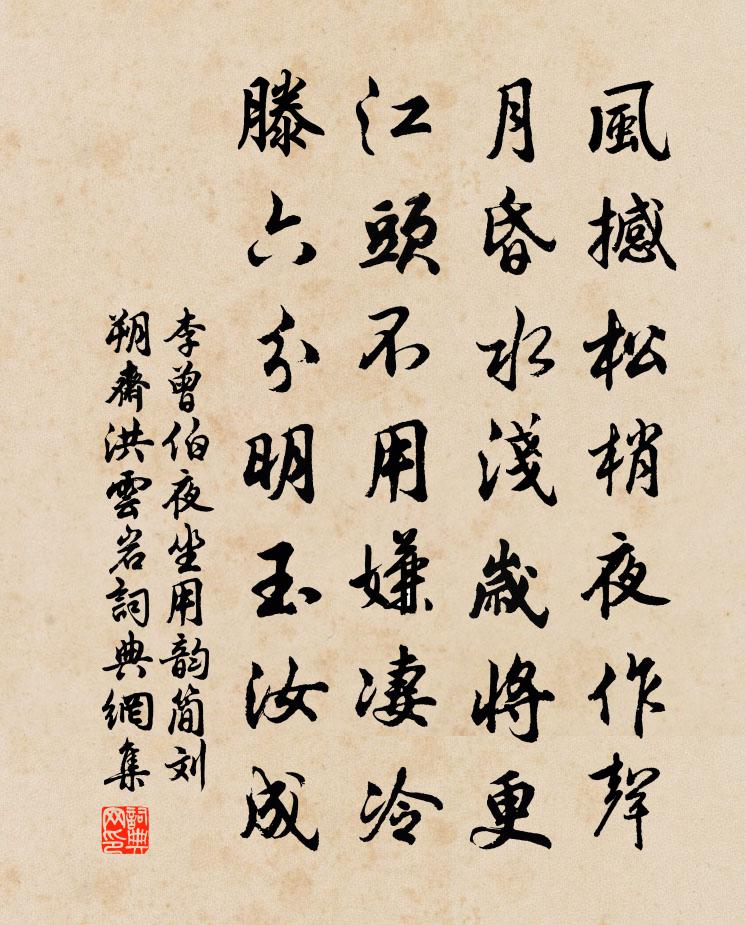 風撼松梢夜作聲
月昏水淺歲將更
江頭不用嫌凄冷
滕六分明玉汝成
李曾伯夜坐用韵简刘
朔齋洪雲岩詞典網集
詞典网印